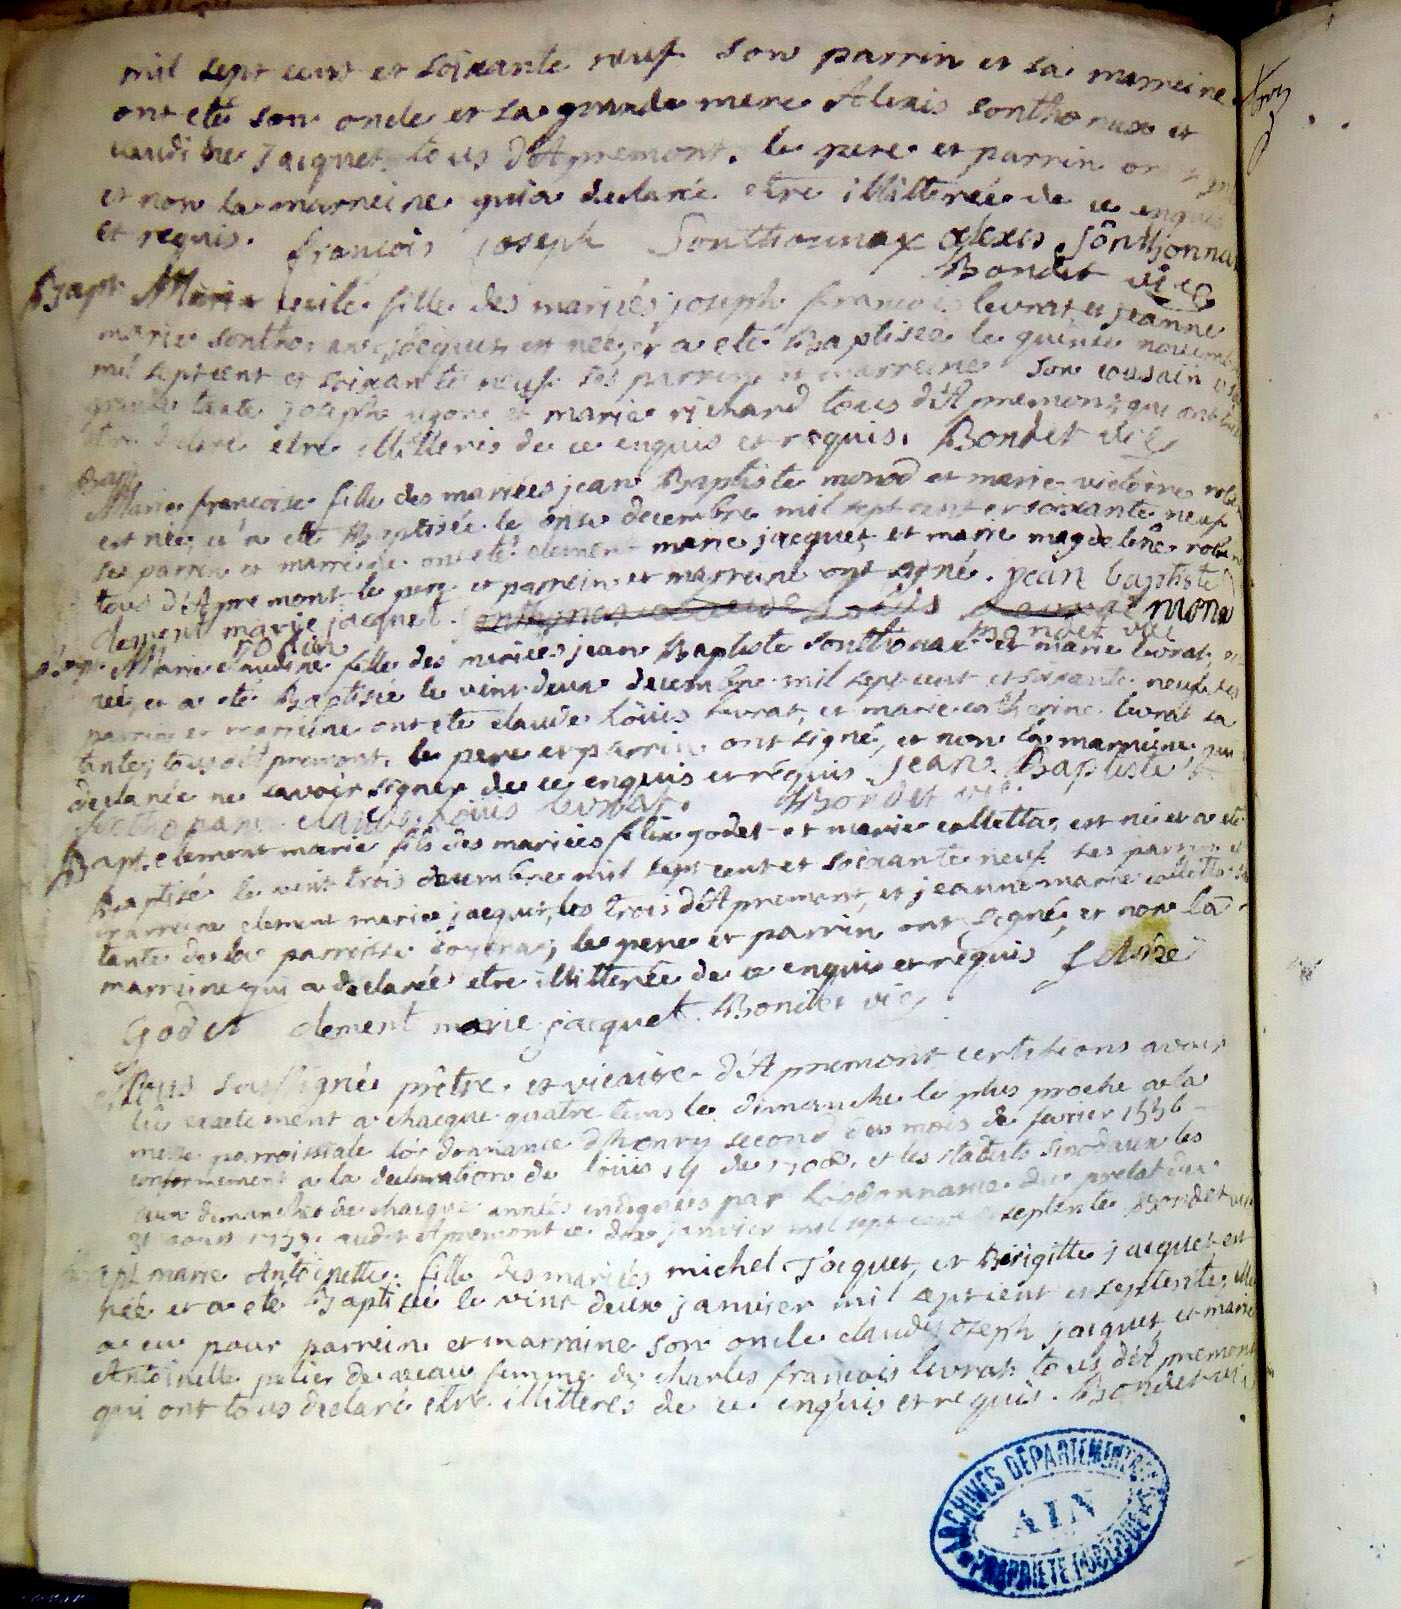 mil sept cent et soixante neuf son parrin et sa marreine
ont eté son oncle et sa grande mere Alexis sonthonax et
Jacquet tous d'Apremont. le pere et parrin on
et non la marreine qui a declaré etre illitterée de ce enquis
et requis. françois joseph Sonthounax alexis sonthonna
Bondet vic
Bapt Marie fille des mariés joseph françois levrat et jeanne
marie jacquet est née, et a eté Baptisée le quinze novemb
mil sept cent et soixante neuf ses parrin et marreine son cousin
tante joseph ugon et marie richard tous d'Apremont, qui ont
etre illitteris de ce enquis et requis. Bondet vic
Bapt
Marie françoise fille des mariées jean Baptiste monod et marie victoire
est née, et a eté Baptisée le onze decembre mil sept cent et soixante neuf
ses parrin et marreine ont eté clement marie jacquet, et marie magdelène
tous d'Apremont le pere et parrein et marreine ont signé. jean baptiste
clement marie jacquet. mona
Bondet vic
Bapt Marie claudine fille des mariées jean Baptiste sonthonax et marie levrat,
née, et a eté Baptisée le vint deux decembre mil sept cent et soixante neuf ses
parrin et marreine ont eté claude Loüis levrat, et marie catherine levrat sa
tante, tous d'Apremont. le pere et parrin ont signé, et non la marreine
declarée ne savoir signer de ce enquis et requis jean Baptiste
claude Louis levrat. Bondet vic.
Bapt. clement marie fils des mariées felix godet et marie colletta, est né et a eté
Baptisé le vint trois decembre mil sept cent et soixante neuf ses parrin et
marreine clement marie jacquet, les trois d'Apremont, et jeanne marie colletta sa
tante de la parroisse, le pere et parrin ont signé, et non la
marreine qui a declarée etre illitterée de ce enquis et requis felixe
Godet clement marie jacquet. Bondet vic
Nous soussigné prêtre et vicaire d'Apremont certifions avoir
lû exactement a chacque quatre tems le dimanche le plus proche a la
messe parroissiale l'ordonnance d'henry second du mois de fevrier 1556
conformement a la declaration de loüis 14 de 1708, et les statuts sinodaux les
aux dimanches de chacque années indiquées par l'ordonnance du prelat du
31 aoust audit Apremont ce dix janvier mil sept cent septente Bondet vic
Bapt marie Antoinette fille des mariés michel Jacquet, et Birigitte jacquet est
née et a eté Baptisée le vint deux janvier mil sept cent et septente, elle
a eu pour parrein et marraine son oncle claude joseph jacquet, et marie
Antoinette femme de charles françois levrat tous d'Apremont
qui ont tous declaré etre illitteres de ce enquis et requis. Bondet vic
ARCHIVES DÉPARTEMENTALES
AIN
PROPRIÉTÉ PUBLIQUE